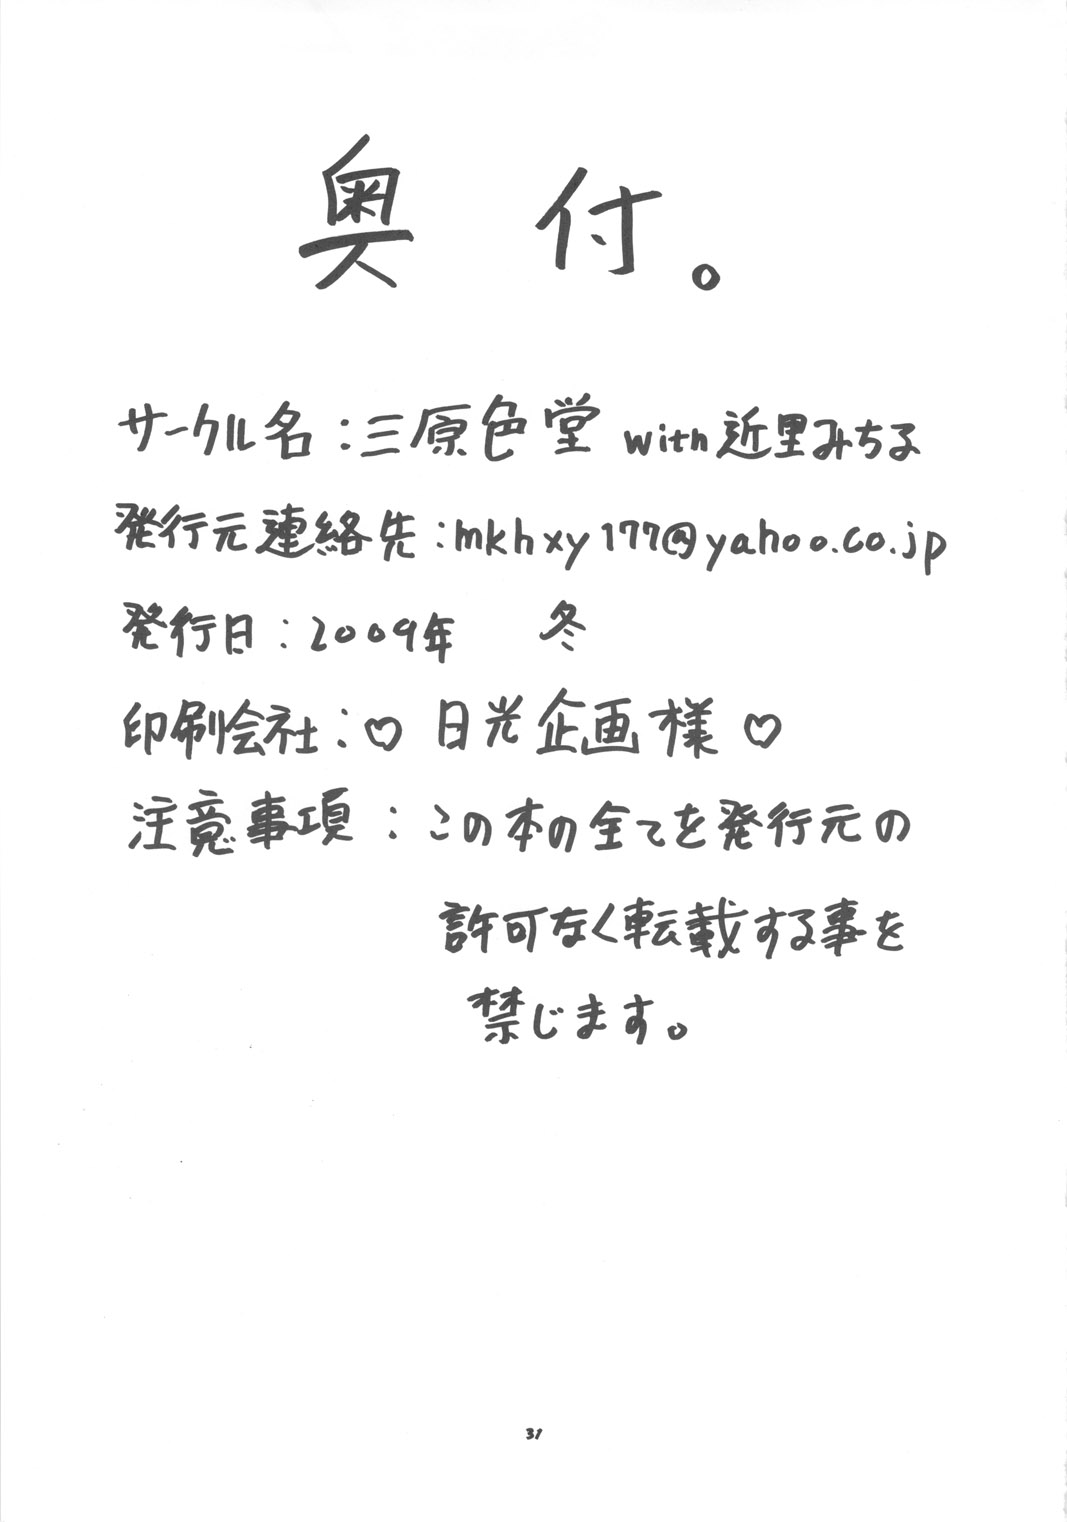 奥付。
サークル名：三原色堂 with 近里みちる
発行元連絡先：mkhxy177@yahoo.co.jp
発行日：2009年　冬
印刷会社：♡ 日光企画様 ♡
注意事項：この本の全てを発行元の
許可なく転載する事を
禁じます。
31